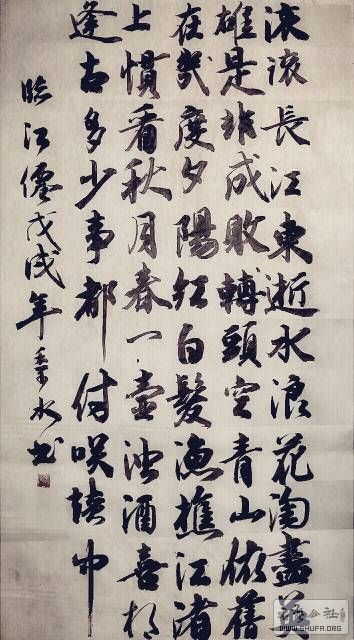 滚滚長江東逝水浪花淘盡英
雄是非成敗轉頭空青山依舊
在幾度夕陽紅白髮漁樵江渚
上慣看秋月春一壺浊酒喜相
逢古多少事都付咲談中
臨江僊戊戌年季水书
公社
WWW.SHUFA.ORG